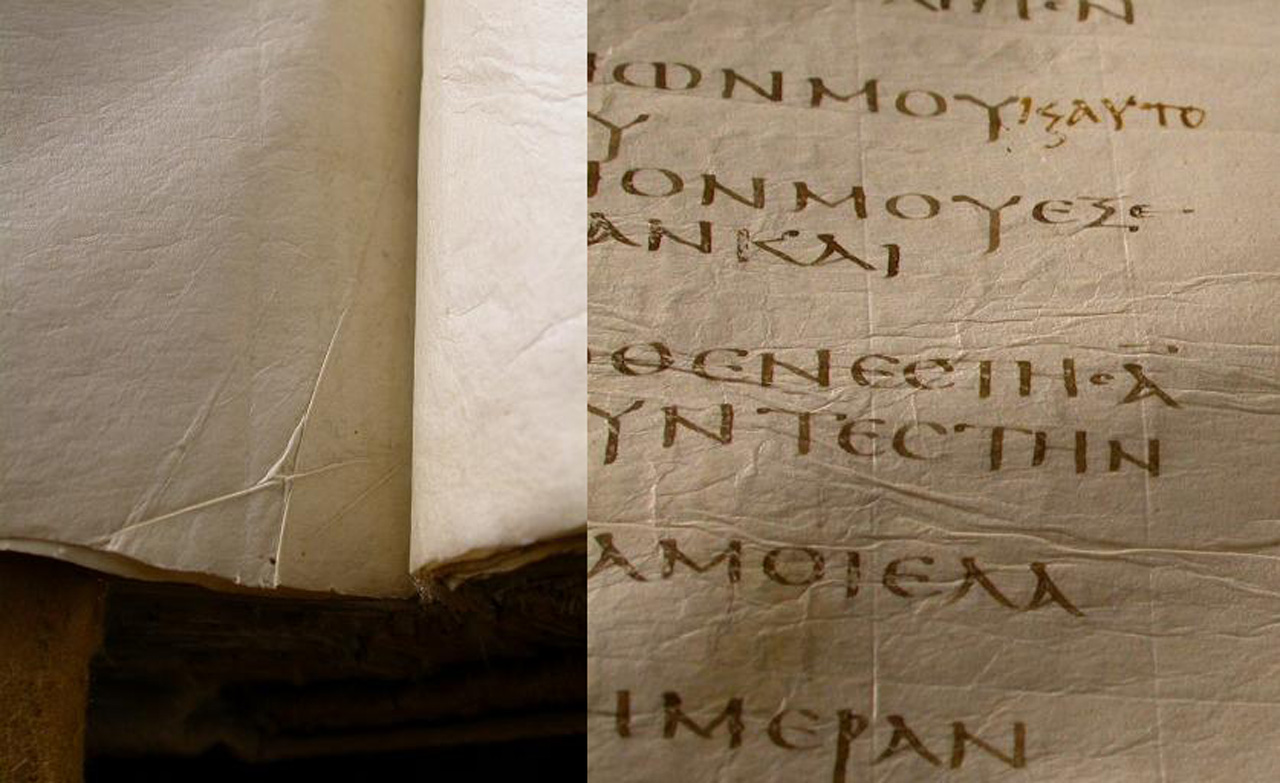 ΙΩΝΜΟΥΙϚΑΥΤΟ
Υ
ΙΟΝΜΟΥΕξΕ
ΑΝΚΑΙ
ΘΕΝΕΣΤΗ·Ᾱ
ΥΝΤΕϹΤΗΝ
ΑΜΟΙΕΛΑ
ΗΜΕΡΑΝ